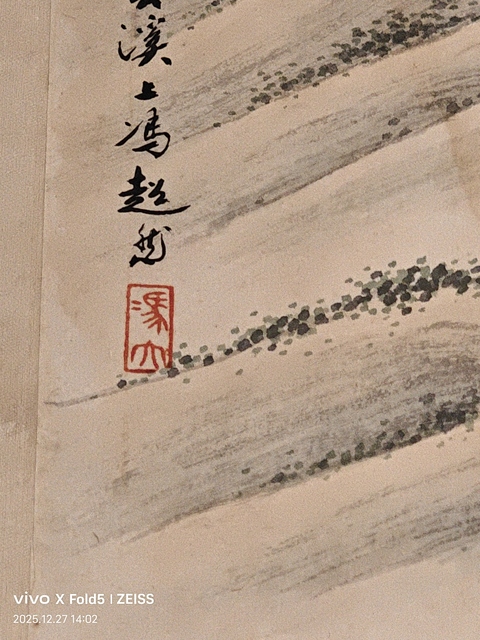 溪上馮超然
馮大
vivo X Fold5 | ZEISS
2025.12.27 14:02